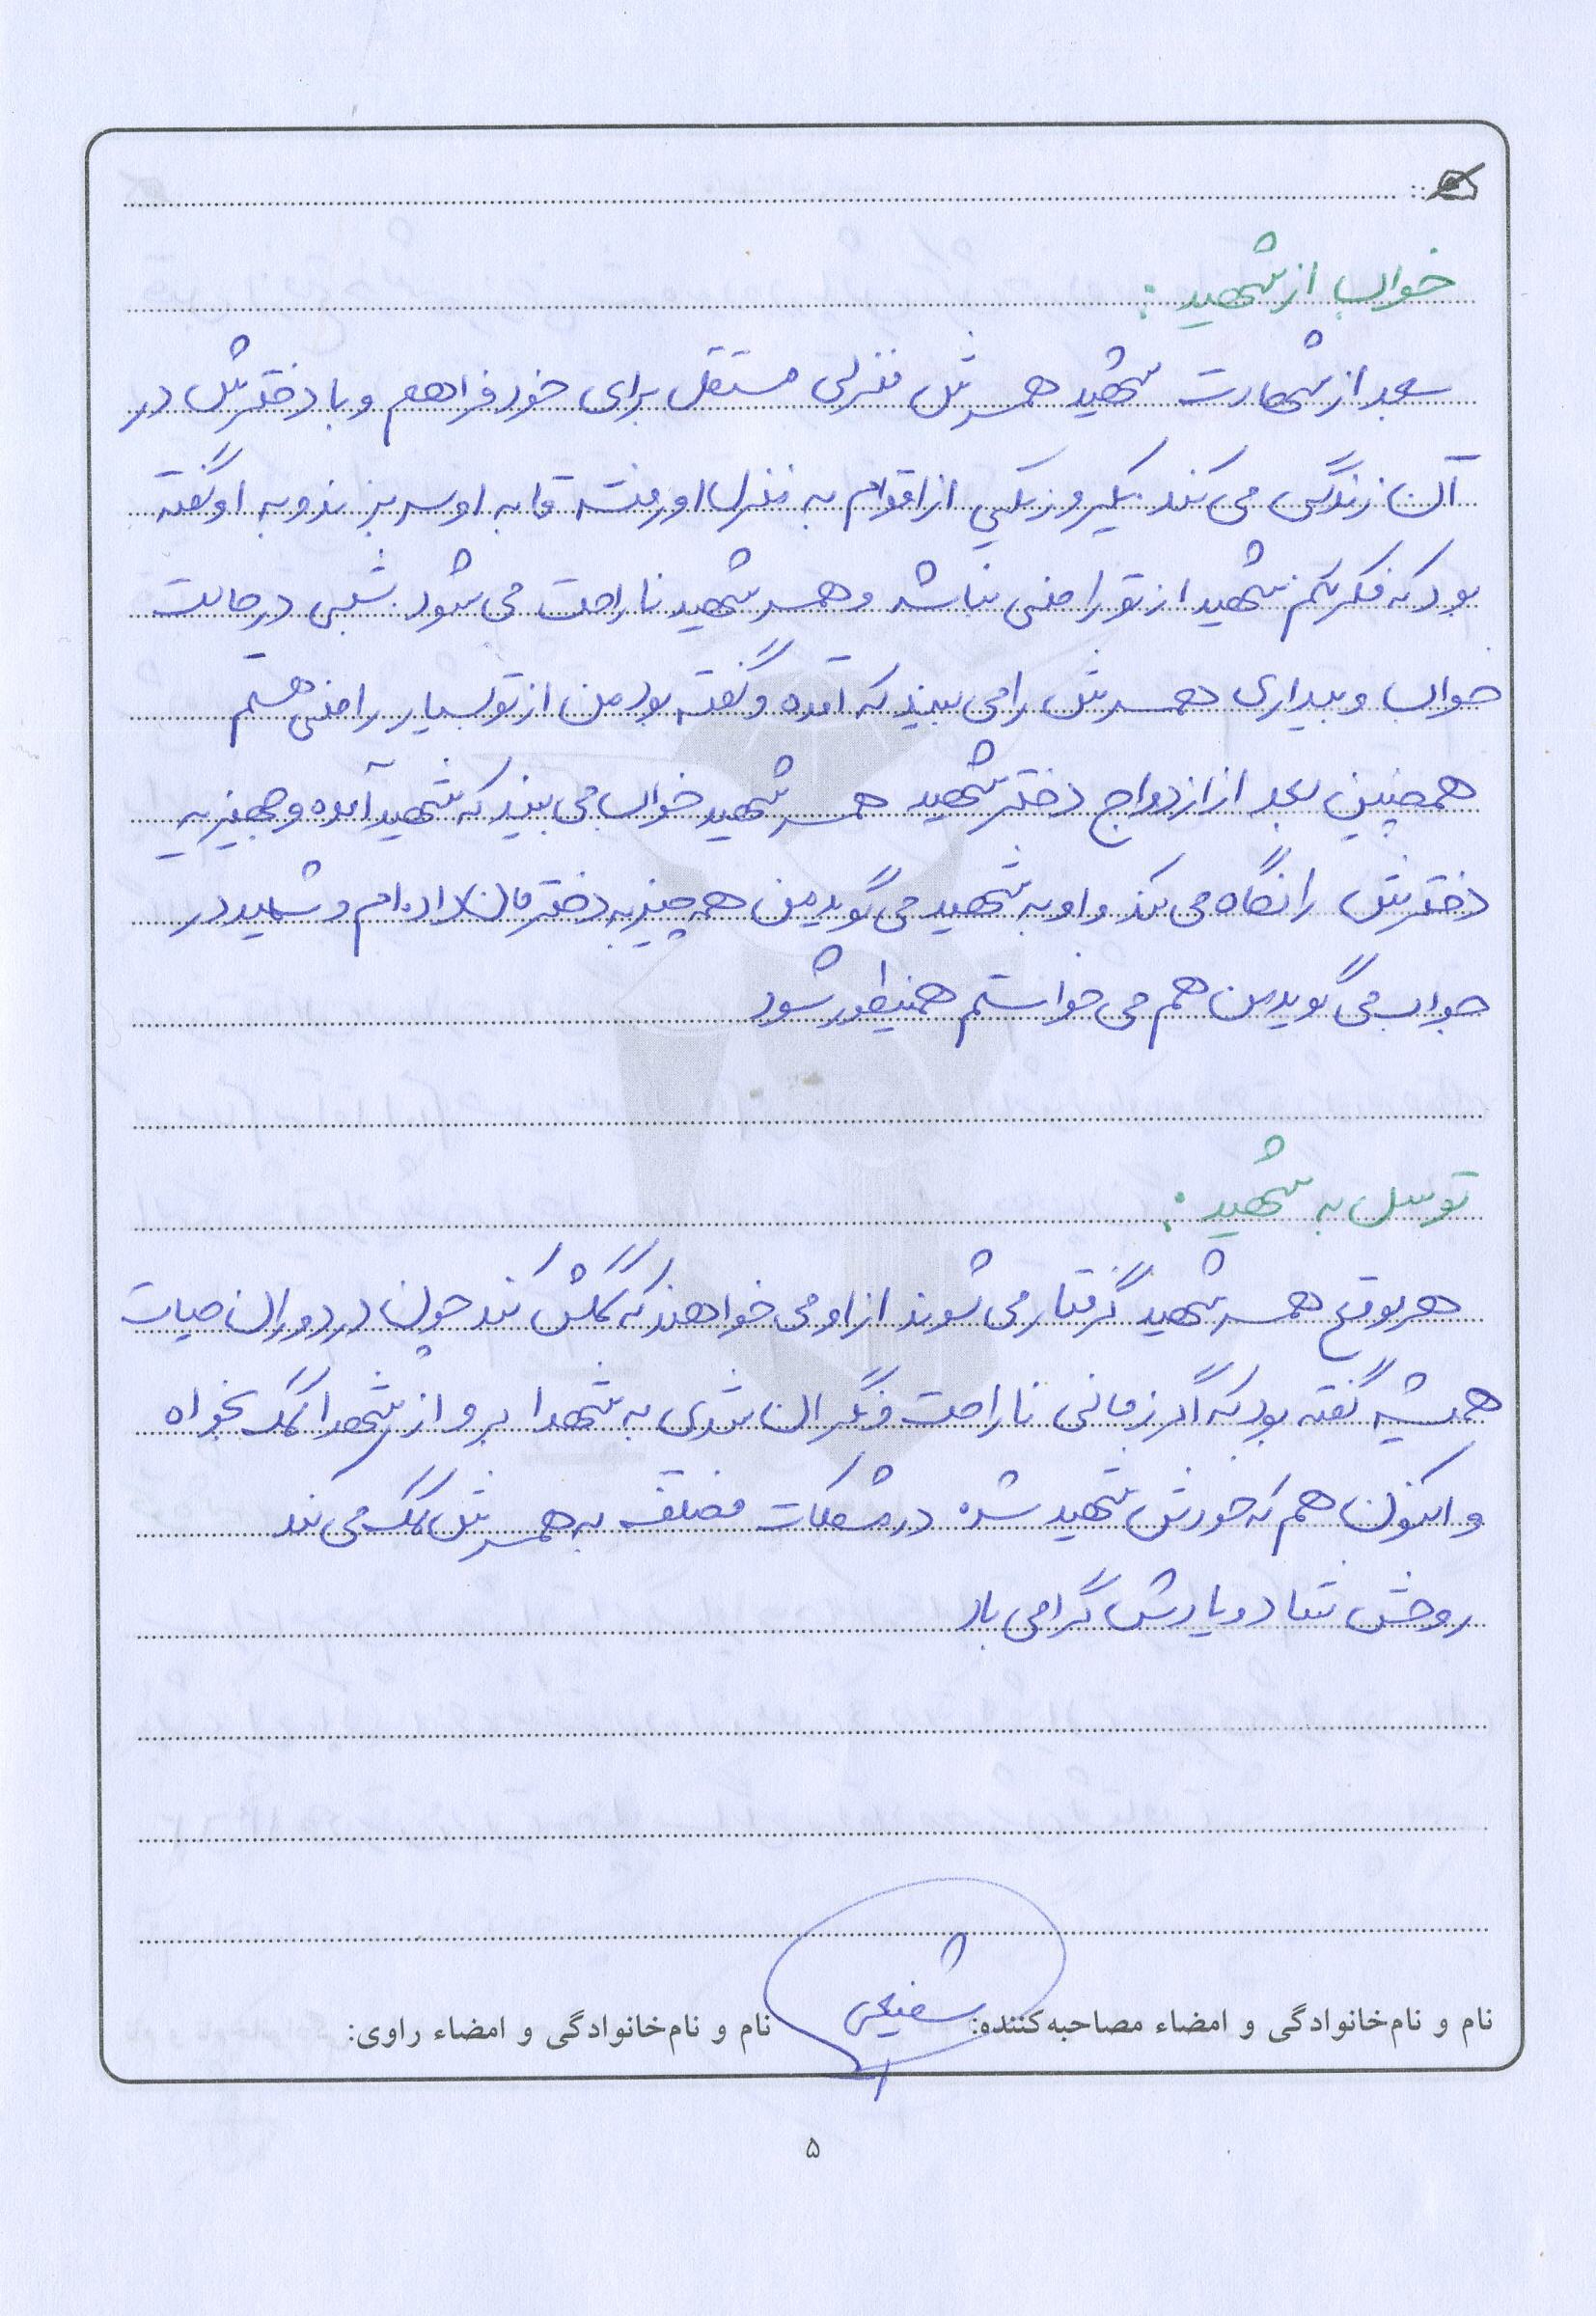 خواب از شهید :
بعد از شهادت شهید همسرش منزلی مستقل برای خود فراهم و با دخترش در
آن زندگی می کند. یکروز یکی از اقوام به منزل او رفته تا به او سر بزند و به او گفته
بود که فکر نکنم شهید از تو راضی باشه و همسر شهید ناراحت می شود. شبی در حالت
خواب و بیداری همسرش را می بیند که آمده و گفته بود من از تو بسیار راضی هستم
همچنین بعد از ازدواج دختر شهید همسر شهید خواب می بیند که شهید آمده و جهیزیه
دخترش را نگاه می کند و او به شهید می گوید من همه چیز به دخترمان داده ام و شهید در
جواب می گوید من هم می خواستم همینطور شود
توسل به شهید :
هر موقع همسر شهید گرفتار می شوند از او می خواهند که کمکش کند چون در دوران حیات
همیشه گفته بود که اگر زمانی ناراحت و نگران شدی به شهدا برو و از شهدا کمک بخواه
و اکنون هم که خودش شهید شده در مشکلات مختلف به همسرش کمک می کند
روحش شاد و یادش گرامی باد
نام و نام‌خانوادگی و امضاء مصاحبه‌کننده: شفیعی نام و نام‌خانوادگی و امضاء راوی:
۵